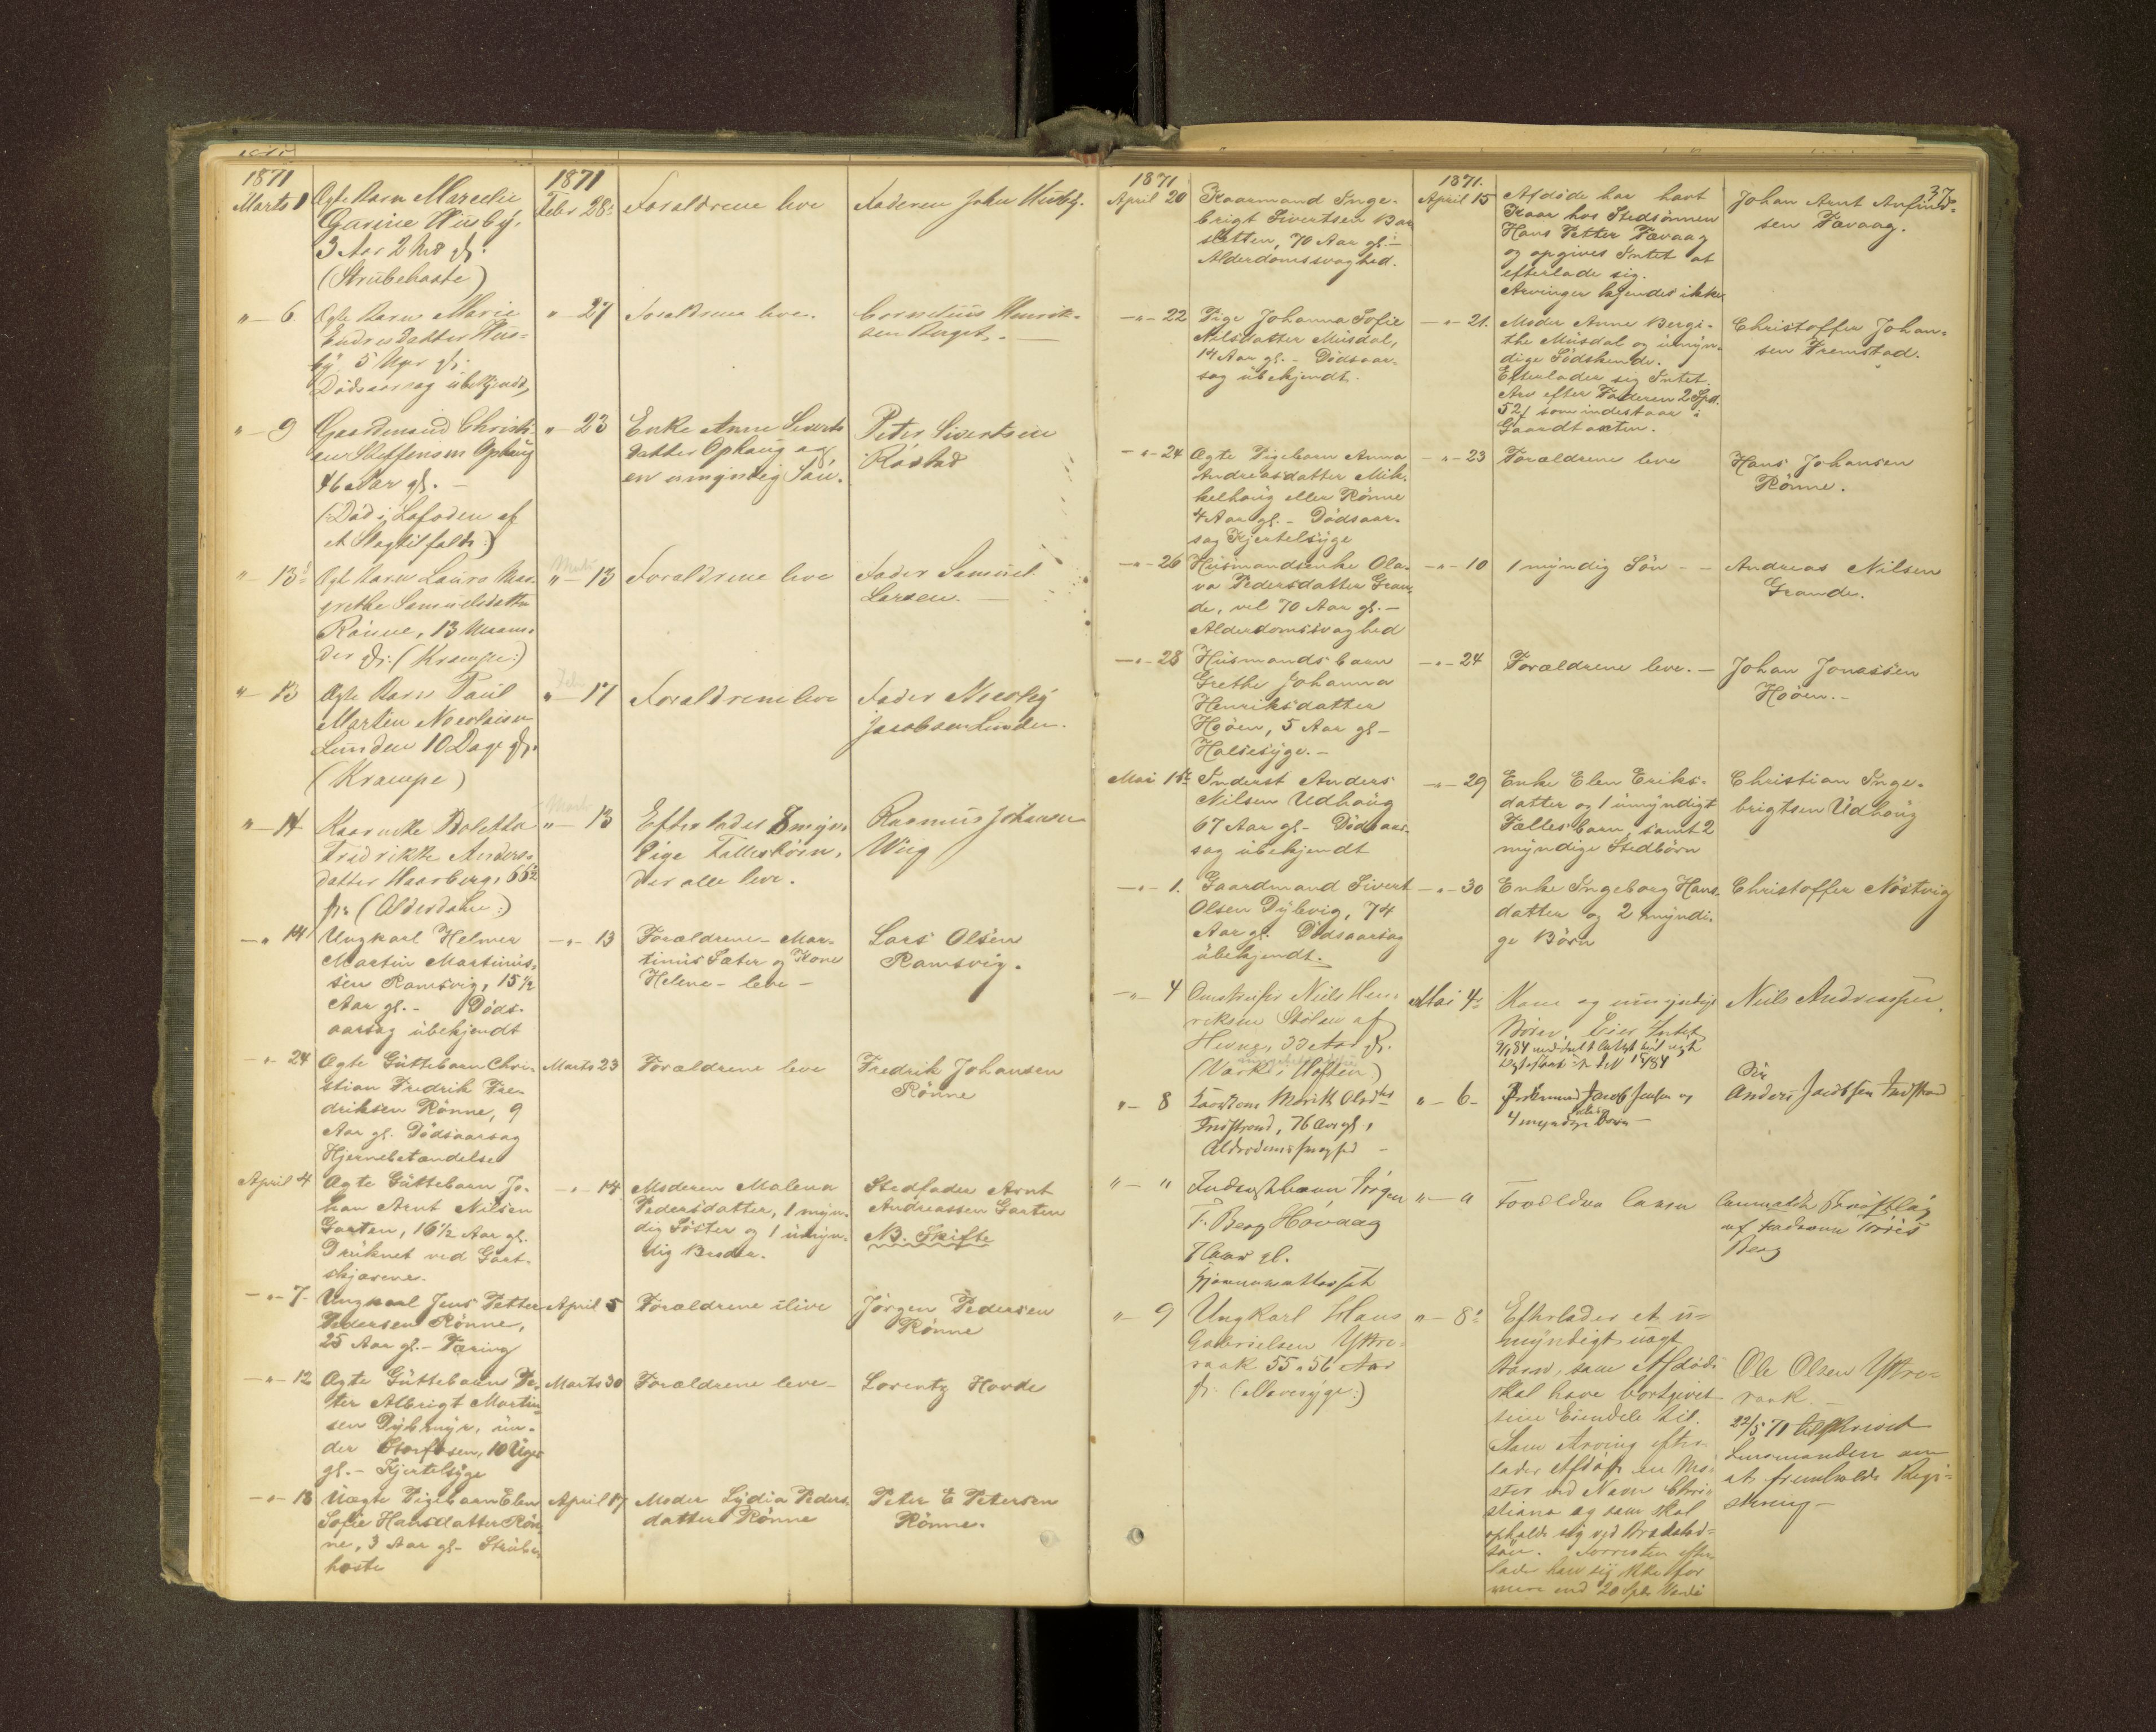 1871
Marts 1
Ægte Barn Marcelie
Gurine Husby,
3 Aar 2 gl.
(Strubehoste)
1871
Febr 28.
Forældrene leve
Faderen John Husby.
" — 6
Ægte Barn Marie
Endresdatter Hus-
by 5 Uger gl.
Dødsaarsag ubekjendt,
" — 27
Forældrene leve.
Cornelius Henrik-
sen Berget. —
" — 9
Gaardmand Christi-
an Steffensen Ophaug
46 Aar gl. —
(: Død i Lofoden af
et Slagtilfælde :)
" — 23
Enke Anne Siverts
datter Ophaug og
en umyndig Søn.
Peter Sivertsen
Røstad
" — 13
Ægte Barn Laura Mar-
grethe Samuelsdatter
Rønne, 13 Maane-
der gl. (Krampe:)
Marts
" — 13
Forældrene leve
Fader Samuel
Larsen. —
" — 13
Ægte Barn Paul
Martin Nicolaisen
Lunden 10 Dage gl.
(Krampe)
Feb
" — 17
Forældrene leve
Fader Nicolay
Jacobsen Lunden.
" — 14
Kaarenke Boletta
Fredrikke Anders-
datter Haarberg, 66½
gl. (Alderdom:)
Marts
" — 13
Efterlader 8 myn-
dige Fællesbørn,
der alle leve.
Rasmus Johansen
Wiig
— " 14
Ungkarl Helmer
Martin Martinus-
sen Ramsvig, 15½
Aar gl. — Døds-
aarsag ubekjendt
— " — 13
Forældrene — Mar-
tinus Sæter og Kone
Helene — leve —
Lars Olsen
Ramsvig.
— " — 24
Ægte Guttebarn Chri-
stian Fredrik Fre-
driksen Rønne, 9
Aar gl. Dødsaarsag
Hjernebetændelse
Marts 23
Forældrene leve
Fredrik Johansen
Rønne
April 4
Ægte Guttebarn Jo-
han Arnt Nilsen
Garten, 16½ Aar gl.
Druknet ved Gart-
skjærene.
— " — 14
Moderen Malena
Pedersdatter, 1 myn-
dig Søster og 1 umyn-
dig Broder.
Stedfader Arnt
Andreassen Garten
NB. Skifte
— " — 7 —
Ungkarl Jens Petter
Pedersen Rønne,
25 Aar gl. — Tæring
April 5
Forældrene ilive
Jørgen Pedersen
Rønne
— " — 12
Ægte Guttebarn Pe-
ter Albrigt Martin-
sen Dybmyr, un-
der Storfosen, 10 Uger
gl. — Kjertelsyge
Marts 30
Forældrene leve —
Lorentz Hovde
— " — 18
Uægte Pigebarn Elen
Sofie Hansdatter Røn-
ne, 3 Aar gl — Strube-
hoste
April 17
Moder Lydia Peders-
datter Rønne
Peter E Petersen
Rønne.
37
1871
April 20
Kaarmand Inge-
brigt Sivertsen Bar
sletten, 70 Aar gl. —
Alderdomssvaghed.
1871.
April 15
Afdøde har havt
Kaar hos Stedsønnen
Hans Petter Favaag
og opgives Intet at
efterlade sig.
Arvinger kjendes ikke
Johan Arnt Anfind-
sen Favaag.
— " — 22
Pige Johanna Sofie
Nilsdatter Musdal,
14 Aar gl. — Dødsaar-
sag ubekjendt.
— " — 21.
Moder Anne Bergi-
the Musdal og umyn-
dige Sødskende.
Efterlader sig Intet.
Arv efter Faderen 2 Spd.
52 som indestaar i
Gaardtaxten.
Christoffer Johan-
sen Fremstad.
— " — 24
Ægte Pigebarn Anna
Andreasdatter Mik-
kelhaug eller Rønne
4 Aar gl. — Dødsaar-
sag Kjertelsyge
— " — 23
Forældrene leve
Hans Johansen
Rønne.
— " — 26
Husmandsenke Ola-
va Pedersdatter Gran-
de, vel 70 Aar gl. —
Alderdomssvaghed
— " — 10
1 myndig Søn — —
Andreas Nilsen
Grande.
— " — 28
Husmandsbarn
Grethe Johanna
Henriksdatter
Hoøen, 5 Aar gl —
Halssyge. —
— " — 24
Forældrene leve. —
Johan Jonassen
Hoøen. —
Mai 1ste
Inderst Anders
Nilsen Udhaug
67 Aar gl — Dødsaar-
sag ubekjendt
— " — 29
Enke Elen Eriks-
datter og 1 umyndigt
Fællesbarn, samt 2
myndige Stedbørn
Christian Inge-
brigtsen Udhaug
— " — 1.
Gaardmand Sivert
Olsen Dybvig, 74
Aar gl. Dødsaarsag
ubekjendt. —
— " — 30
Enke Ingeborg Hans-
datter og 2 myndi-
ge Børn
Christoffer Nøstvig
— " — 4
Niels Hen-
riksen Stølen af
Hevne, 33 Aar gl.
Mai 4
Kone og umyndige
Børn. Eier Intet
Niels Andreassen
" — 8
Marit Olsdtr
76 Aar gl.,
" — 6 —
Jacob Jensen og
4 myndige Børn —
Søn
Anders Jacobsen
" — "
Jørgen
T. Berg Hovaag
7 Aar gl.
" — "
af Faderen
Berg
" — 9
Ungkarl Hans
Gabrielsen Yttro-
vaak 55 a 56 Aar
gl. (Mavesyge:)
" — 8
Efterlader et u-
myndigt uægt
Barn, som Afdøde
skal have bortgivet
sine Eiendele til.
Som Arving efter-
lader Afdøde en Sø-
ster ved Navn Chri-
stiana og som skal
opholde sig ved Kristiansund.
Forresten efter-
lader han sig ikke for
mere end 20 Spd Værdi
Ole Olsen Yttro-
vaak. —
22/5 71 tilskrevet
Lensmanden om
at fremholde Regi-
strering —